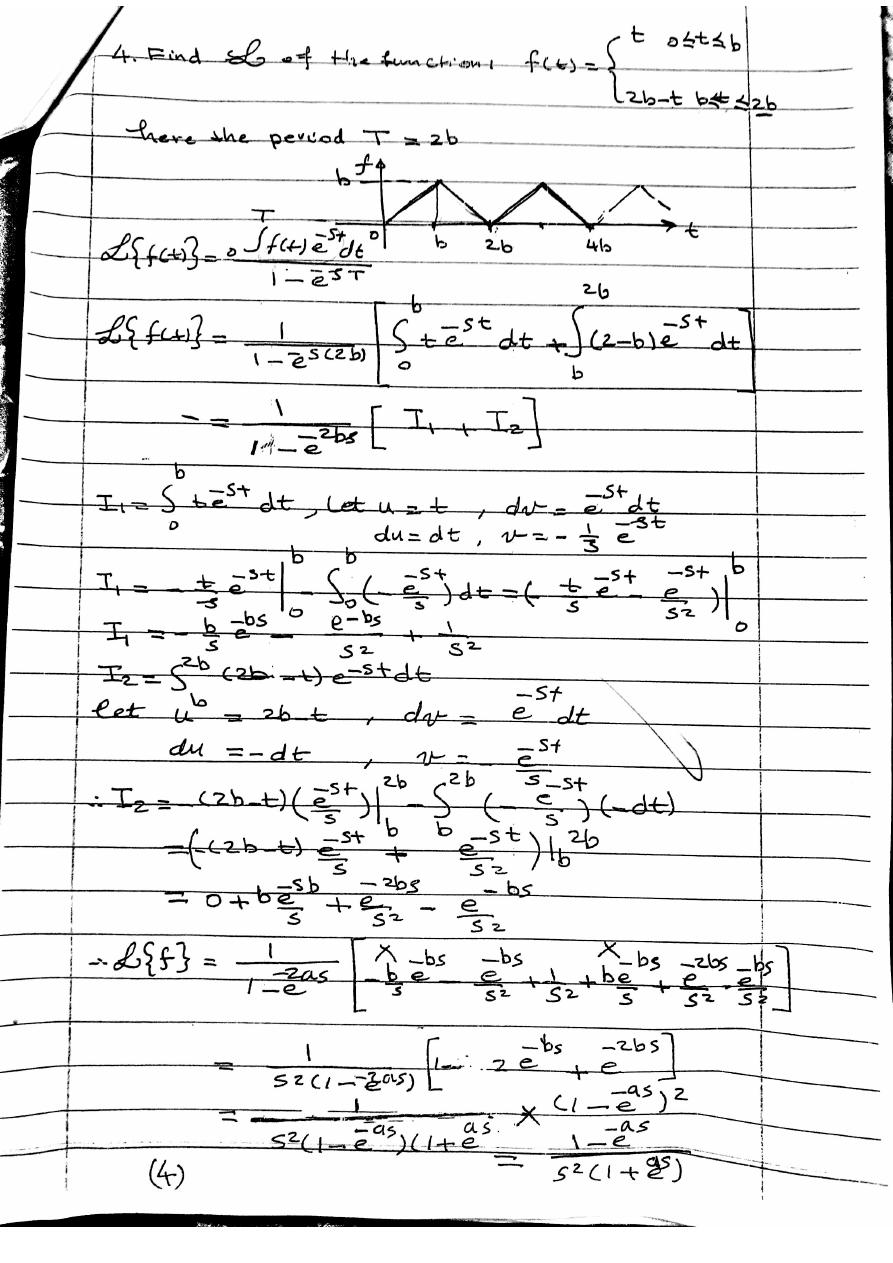 4. Find ℒ of the function, f(t) = { t 0≤t≤b
2b-t b≤t≤2b
here the period T = 2b
f b 0 b 2b 4b t
ℒ{f(t)} = ₀∫ᵀ f(t) e^-st dt / 1 - e^-sT
ℒ{f(t)} = 1 / 1 - e^-s(2b) [ ∫₀^b t e^-st dt + ∫_b^2b (2-b) e^-st dt ]
= 1 / 1 - e^-2bs [ I₁ + I₂ ]
I₁ = ∫₀^b t e^-st dt , Let u = t , dv = e^-st dt
du = dt , v = - 1/s e^-st
I₁ = - t/s e^-st |₀^b - ∫₀^b (- e^-st/s) dt = (- t/s e^-st - e^-st/s²) |₀^b
I₁ = - b/s e^-bs - e^-bs/s² + 1/s²
I₂ = ∫_b^2b (2b - t) e^-st dt
let u = 2b-t , dv = e^-st dt
du = -dt , v = - e^-st/s
∴ I₂ = -(2b-t)(e^-st/s) |_b^2b - ∫_b^2b (- e^-st/s)(-dt)
= (-(2b-t) e^-st/s + e^-st/s²) |_b^2b
= 0 + b e^-sb/s + e^-2bs/s² - e^-bs/s²
∴ ℒ{f} = 1 / 1 - e^-2as [ - b/s e^-bs - e^-bs/s² + 1/s² + b e^-bs/s + e^-2bs/s² - e^-bs/s² ]
= 1 / s²(1 - e^-2as) [ 1 - 2 e^-bs + e^-2bs ]
= 1 / s²(1 - e^-as)(1 + e^as × (1 - e^-as)²
(4) = 1 - e^-as / s²(1 + e^as)